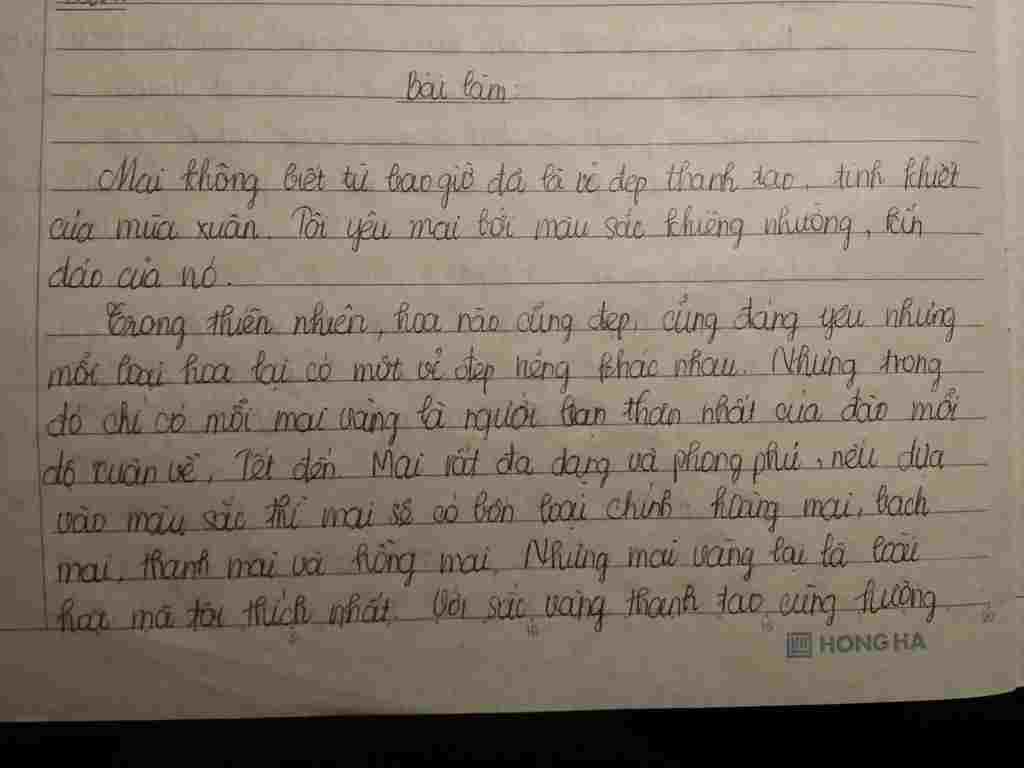 Bài làm:
Mai không biết từ bao giờ đã là vẻ đẹp thanh tao, tinh khiết
của mùa xuân. Tôi yêu mai bởi màu sắc khiêng nhường, kín
đáo của nó.
Trong thiên nhiên, hoa nào cũng đẹp, cũng đáng yêu nhưng
mỗi loại hoa lại có một vẻ đẹp riêng khác nhau. Nhưng trong
đó chỉ có mỗi mai vàng là người bạn thân nhất của đào mỗi
độ xuân về, Tết đến. Mai rất đa dạng và phong phú, nếu dựa
vào màu sắc thì mai sẽ có bốn loại chính: hoàng mai, bạch
mai, thanh mai và hồng mai. Nhưng mai vàng lại là loài
hoa mà tôi thích nhất. Với sắc vàng thanh tao cùng hương
5 10 15 20
HONG HA